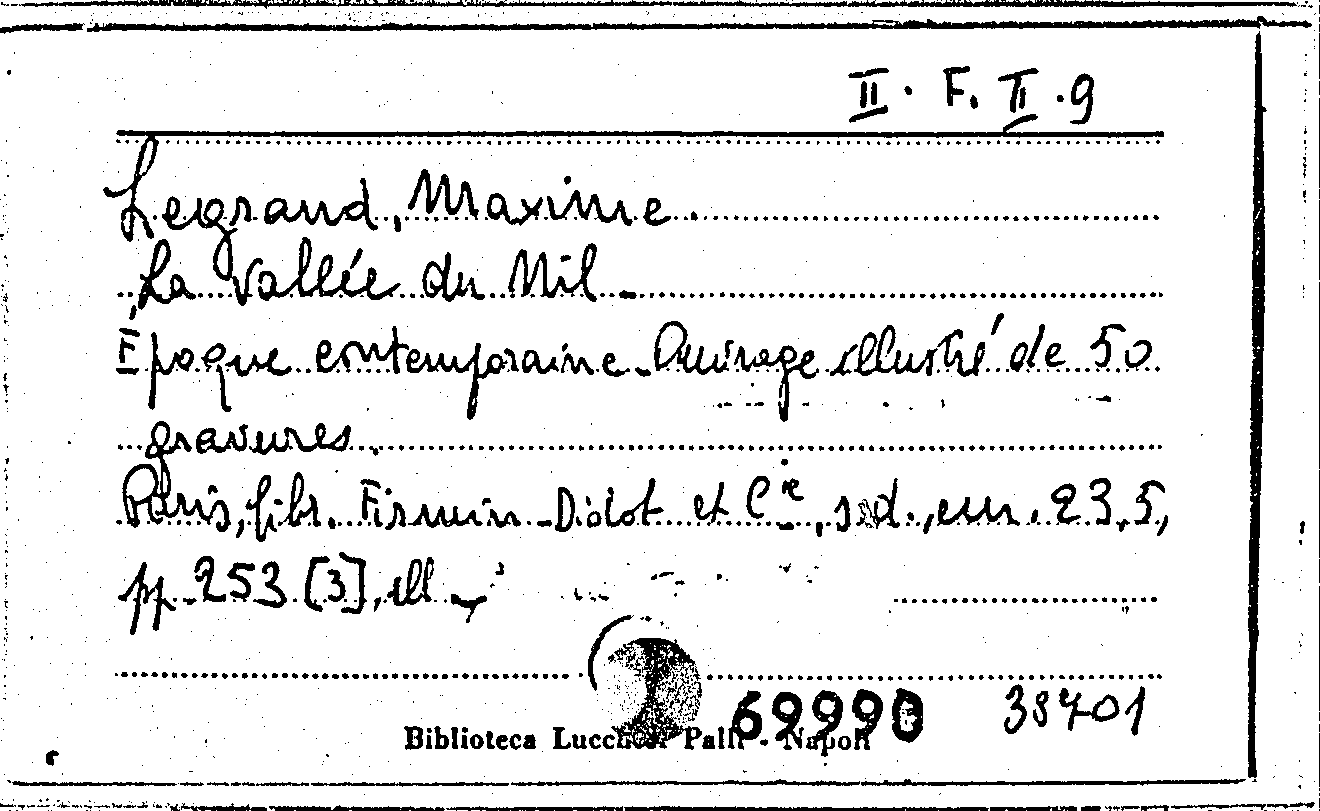 II. F. II. 9
Legrand, Maxime.
La Vallée du Nil -
Époque contemporaine - Ouvrage illustré de 50
gravures.
Paris, libr. Firmin-Didot et Cie, s.d., cm. 23,5,
pp. 253 [3], ill -
69990 38401
Biblioteca Lucchesi Palli - Napoli